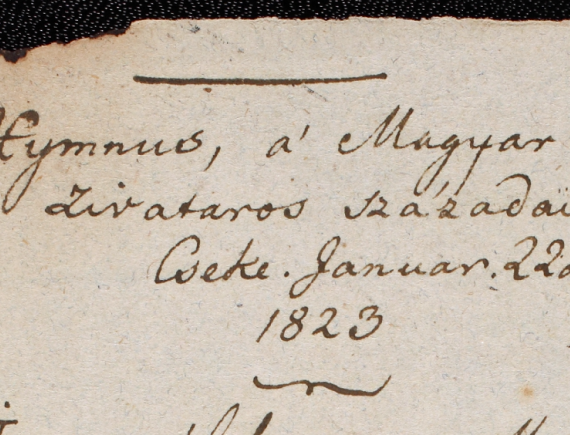 Hymnus, a' Magyar
zivataros századai
Cseke. Januar. 22d
1823